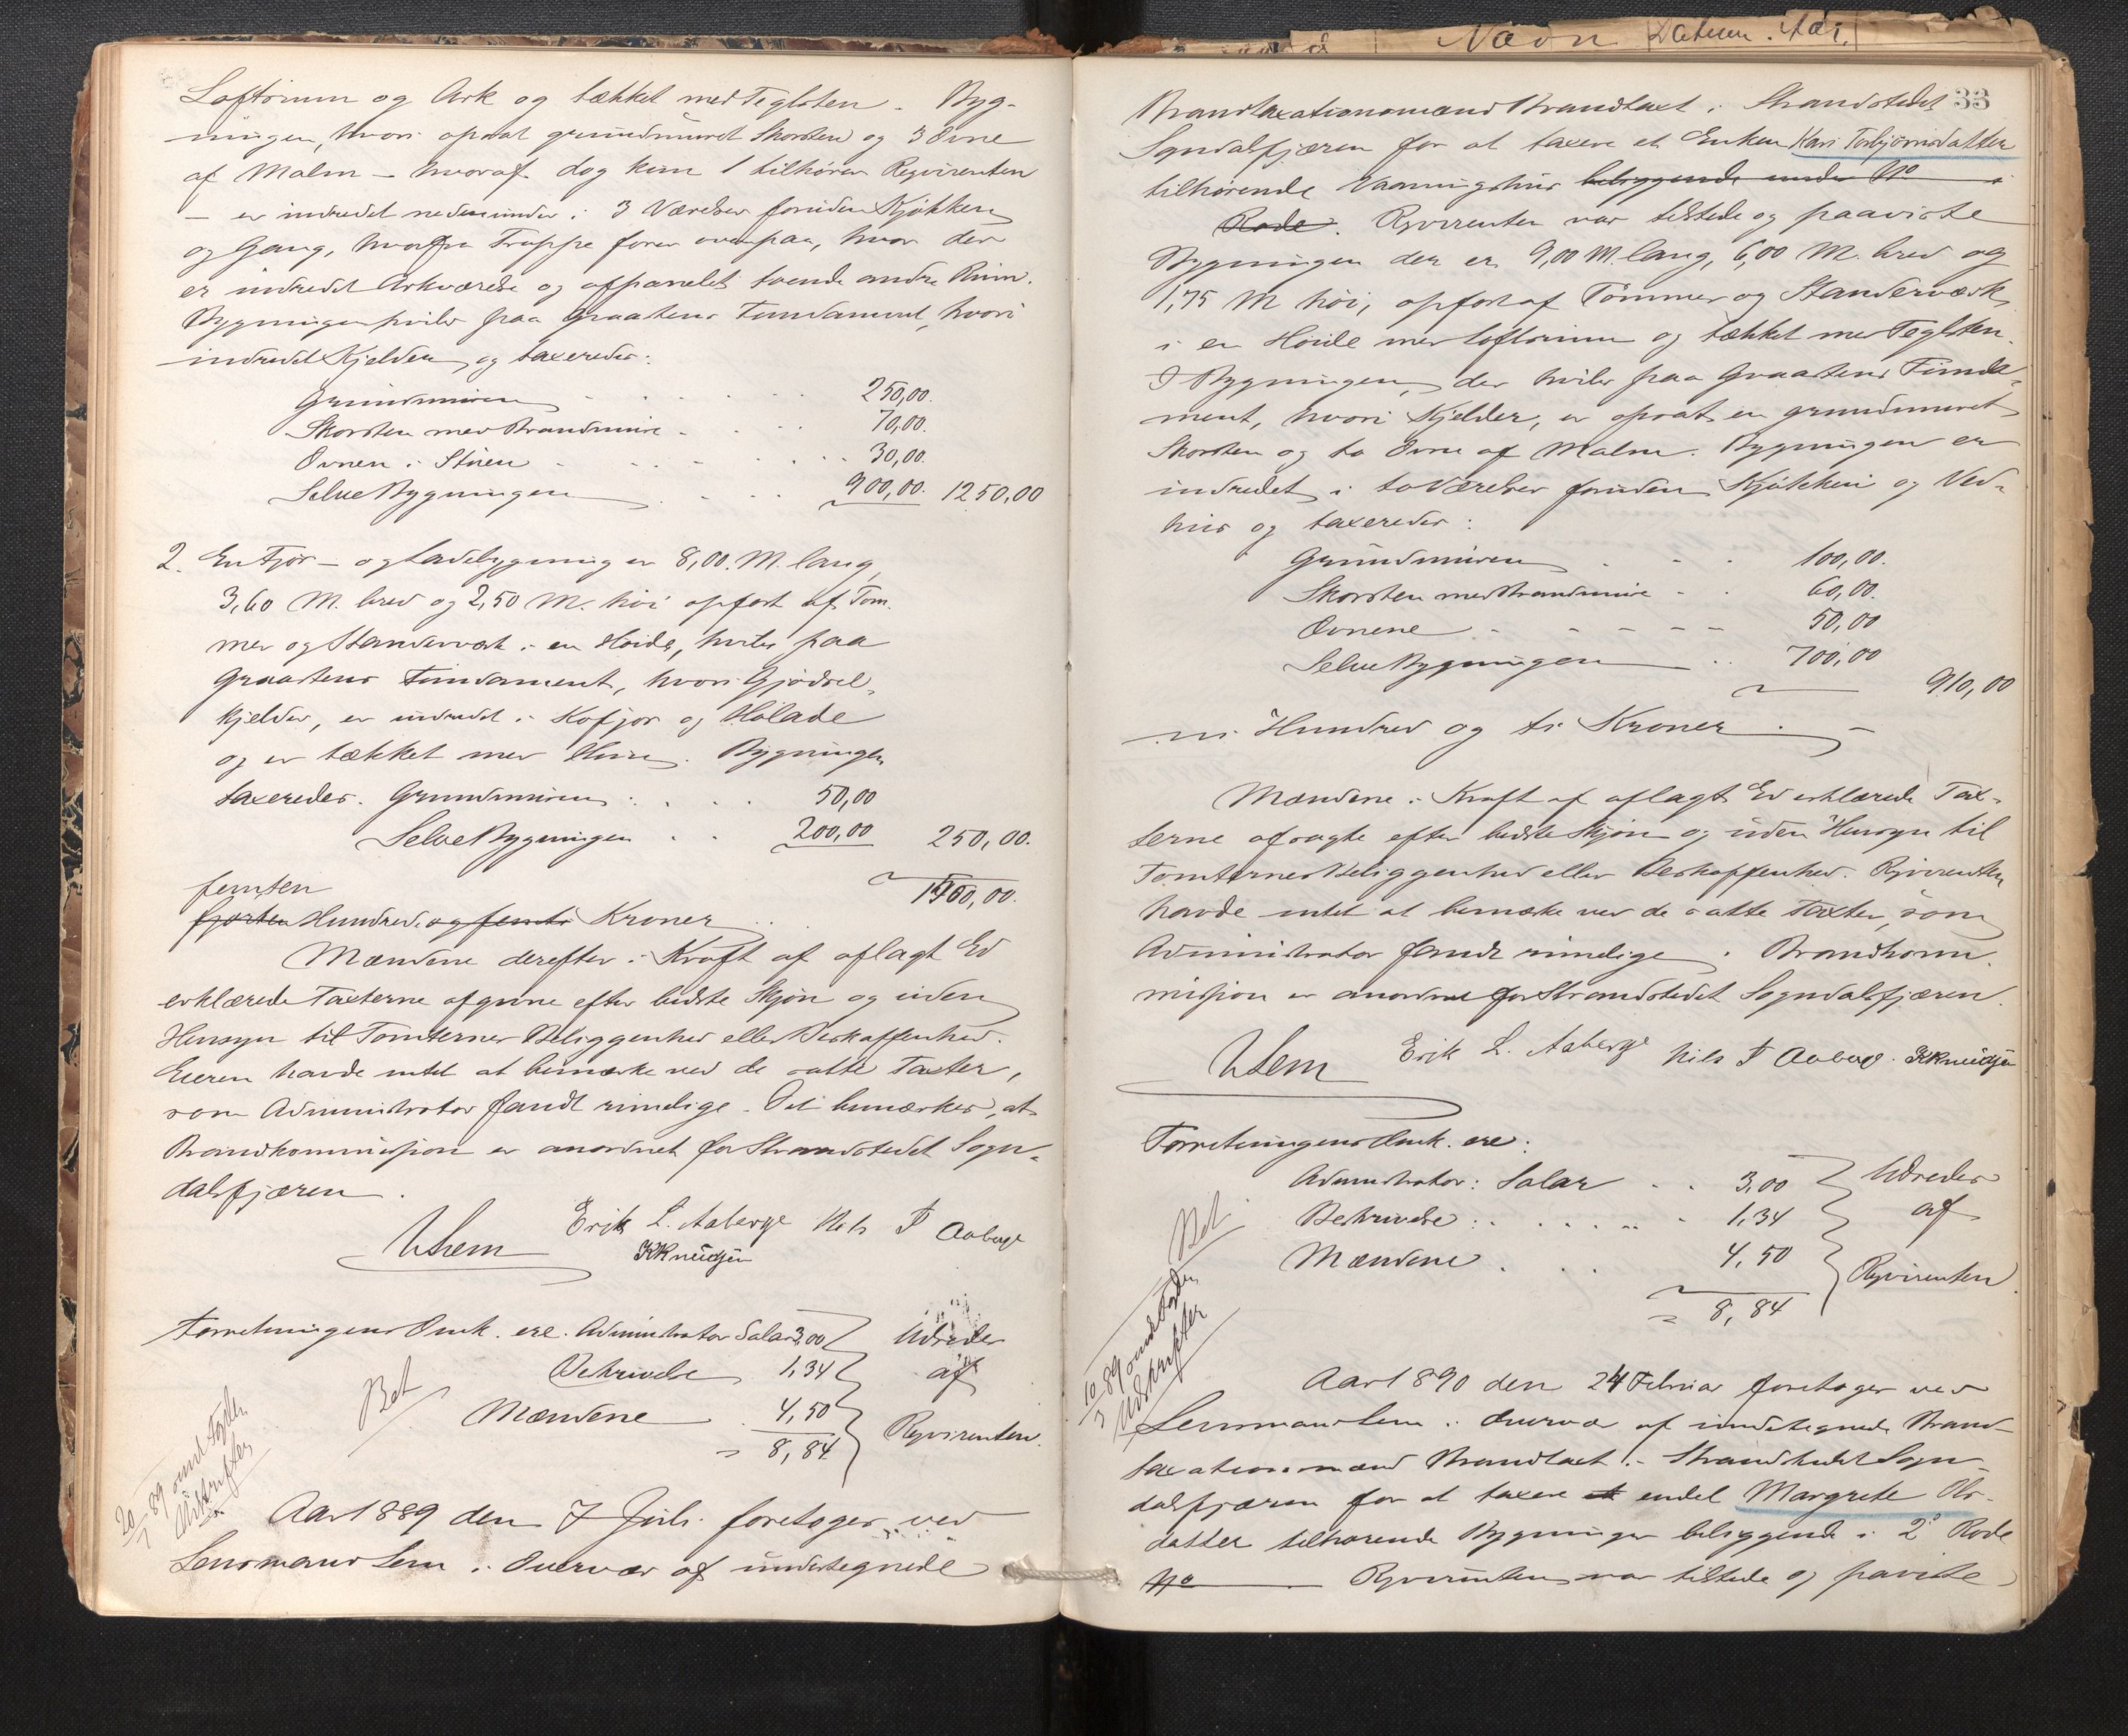 Navn Datum. Aar.
Loftsrum og Ark og tækket med Teglsten. Byg-
ningen, hvori opsat grundmuret Skorsten og 3 Ovne
af Malm – hvoraf dog kun 1 tilhører Reqvirenten
– er indredet nedenunder i 3 Værelser foruden Kjøkken
og Gang, hvorfra Trappe fører ovenpaa, hvor der
er indredet Arkværelse og afpanelet tvende andre Rum.
Bygningen hviler paa Graastens Fundament, hvori
indredet Kjelder, og taxeredes:
Grundmuren 250,00.
Skorsten med Brandmure 70,00.
Ovnen i Stuen 30,00.
Selve Bygningen 900,00. 1250,00
2. En Fjøs- og Ladebygning er 8,00. M. lang,
3,60 M. bred og 2,50 M. høi opført af Tøm-
mer og Standerværk i en Høide, hviler paa
Graastens Fundament, hvori Gjødsel-
kjelder, er indredet i Kofjøs og Hølade
og er tækket med Hun. Bygningen
taxeredes. Grundmuren 50,00
Selve Bygningen 200,00 250,00.
femten 1500,00.
fjorten Hundrede og femti Kroner
Mændene derefter i Kraft af aflagt Ed
erklærede Taxterne afgivne efter bedste Skjøn og uden
Hensyn til Tomternes Beliggenhed eller Beskaffenhed.
Eieren havde intet at bemærke ved de satte Taxter,
som Administrator fandt rimelige. Det bemærkes, at
Brandkommission er anordnet for Strandstedet Sogn-
dalsfjæren.
Erik L. Aaberge Nils T Aaberge
Lem KKnudsen
Forretningens Omk. ere. Administrator Salær 3,00 Udredes
Beskrivelse 1,34 af
Bet Mændene 4,50 Reqvirenten.
= 8,84
20/7 89 Udskrifter
Aar 1889 den 7 Juli foretoges ved
Lensmand Lem i Overvær af undertegnede
33
Brandtaxationsmænd Brandtaxt i Strandstedet
Sogndalsfjæren for at taxere et Enken Kari Torbjørnsdatter
tilhørende Vaaningshus beliggende under No i
Rode. Reqvirenten var tilstede og paaviste
Bygningen der er 9,00 M. lang, 6,00 M. bred og
1,75 M høi, opført af Tømmer og Standerværk
i en Høide med Loftsrum og tækket med Teglsten.
I Bygningen, der hviler paa Graastens Funda-
ment, hvori Kjelder, er opsat en grundmuret
Skorsten og to Ovne af Malm. Bygningen er
indredet i to Værelser foruden Kjøkken og Ved-
hus og taxeredes:
Grundmuren 100,00.
Skorsten med Brandmure 60,00.
Ovnene 50,00
Selve Bygningen 700,00
910,00
ni Hundred og ti Kroner
Mændene i Kraft af aflagt Ed erklærede Tax-
terne afsagte efter bedste Skjøn og uden Hensyn til
Tomternes Beliggenhed eller Beskaffenhed. Reqvirenten
havde intet at bemærke ved de satte Taxter, som
Administrator fandt rimelige. Brandkom-
mission er anordnet for Strandstedet Sogndalsfjæren.
Lem Erik L. Aaberge Nils T Aaberge. KKnudsen
Forretningens Omk. ere:
Administrator: Salær 3,00 Udredes
Bet Beskrivelse: 1,34 af
Mændene 4,50 Reqvirenten
= 8,84
10/3 89 Udskrifter
Aar 1890 den 24 Februar foretoges ved
Lensmand Lem i Overvær af undertegnede Brand-
taxationsmænd Brandtaxt i Strandstedet Sogn-
dalsfjæren for at taxere et endel Margrete Ols-
datter tilhørende Bygninger beliggende i 2den Rode
No Reqvirenten var tilstede og paaviste